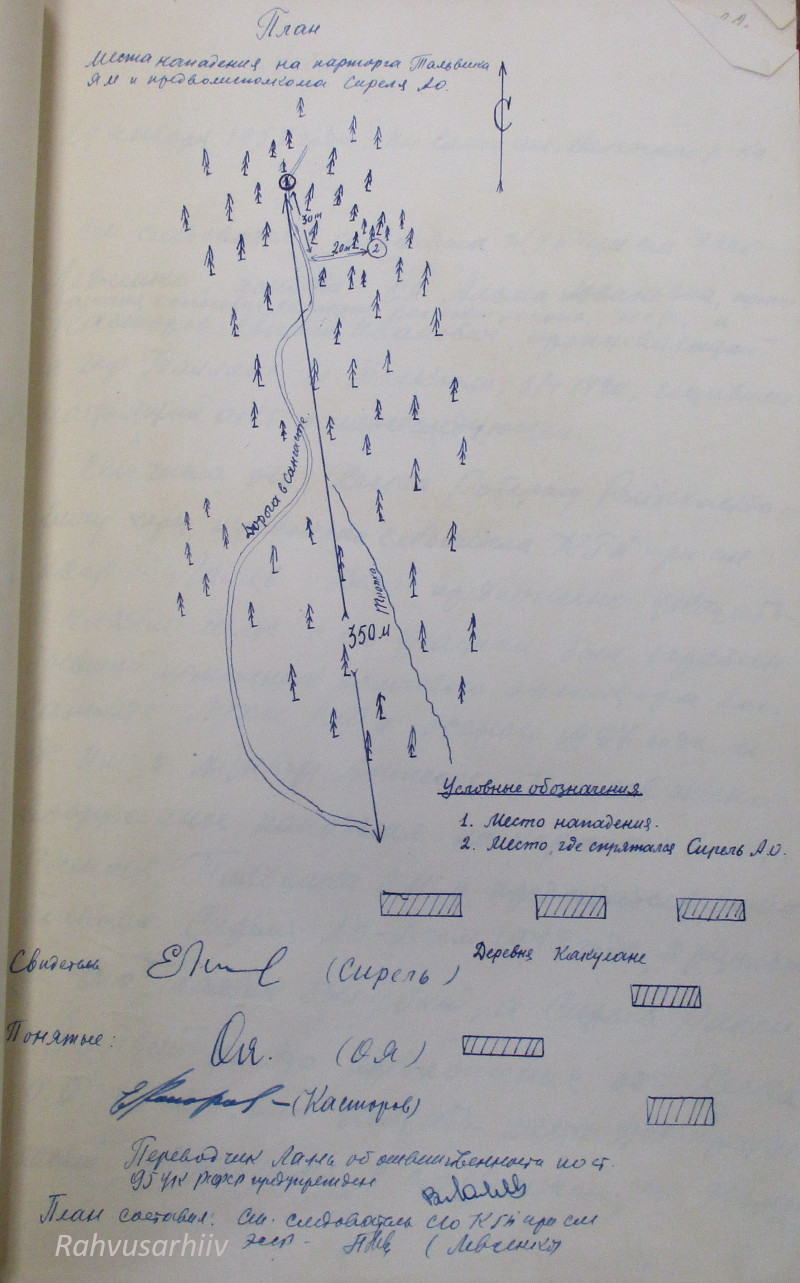 План
Места нападения на парторга Тальвика
Я М и предволисполкома Сиреля А.О.
С
1
30 м
20 м
2
Дорога в Сангасте.
Тропка
350 м
Условные обозначения
1. Место нападения.
2. Место, где спрятался Сирель А.О.
Деревня Какулане
Свидетель (Сирель)
Понятые: Оя. (Оя)
(Касторов)
Переводчик об ответственности по ст.
95 УК РСФСР предупрежден
План составил: Ст. следователь КГБ при СМ
(Левченко)
Rahvusarhiiv